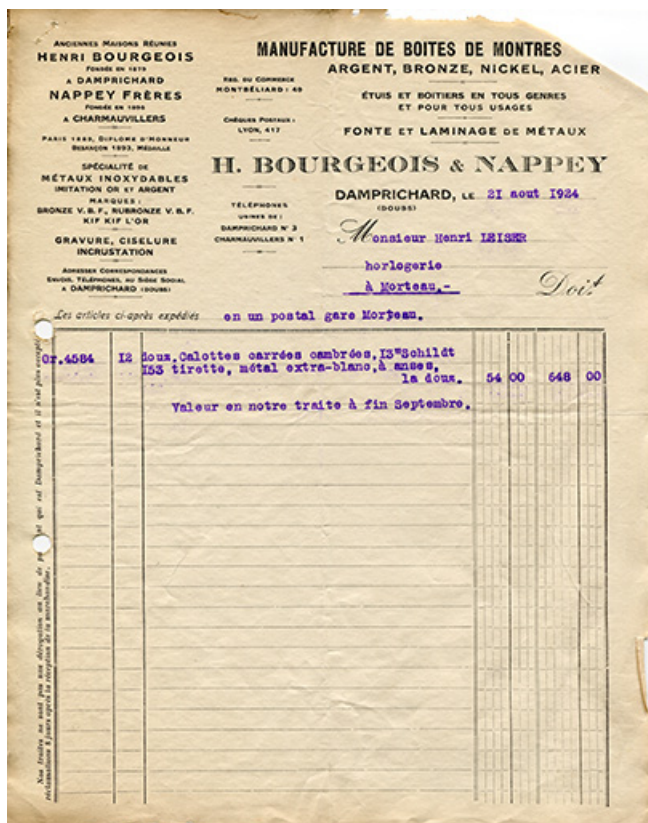 ANCIENNES MAISONS RÉUNIES
HENRI BOURGEOIS
FONDÉE EN 1873
A DAMPRICHARD
NAPPEY FRÈRES
FONDÉE EN 1895
A CHARMAUVILLERS
PARIS 1889, DIPLOME D'HONNEUR
BESANÇON 1893, MÉDAILLE
SPÉCIALITÉ DE
MÉTAUX INOXYDABLES
IMITATION OR ET ARGENT
MARQUES :
BRONZE V. B. F., RUBRONZE V. B. F.
KIF KIF L'OR
GRAVURE, CISELURE
INCRUSTATION
ADRESSER CORRESPONDANCES
ENVOIS, TÉLÉPHONES, AU SIÈGE SOCIAL
A DAMPRICHARD (DOUBS)
REG. DU COMMERCE
MONTBÉLIARD : 49
CHÈQUES POSTAUX :
LYON, 417
TÉLÉPHONES
USINES DE :
DAMPRICHARD N° 3
CHARMAUVILLERS N° 1
MANUFACTURE DE BOITES DE MONTRES
ARGENT, BRONZE, NICKEL, ACIER
ÉTUIS ET BOITIERS EN TOUS GENRES
ET POUR TOUS USAGES
FONTE ET LAMINAGE DE MÉTAUX
H. BOURGEOIS & NAPPEY
DAMPRICHARD, LE 21 aout 1924
(DOUBS)
Monsieur Henri LEISER
horlogerie
à Morteau.-
Doit
Les articles ci-après expédiés en un postal gare Morteau.
Or.4584 12 douz.Calottes carrées cambrées,13"Schildt
153 tirette, métal extra-blanc,à anses,
la douz. 54 00 648 00
Valeur en notre traite à fin Septembre.
Nos traites ne sont pas une dérogation au lieu de qui est Damprichard et il n'est plus accepté
réclamations 8 jours après la réception de la marchandise.